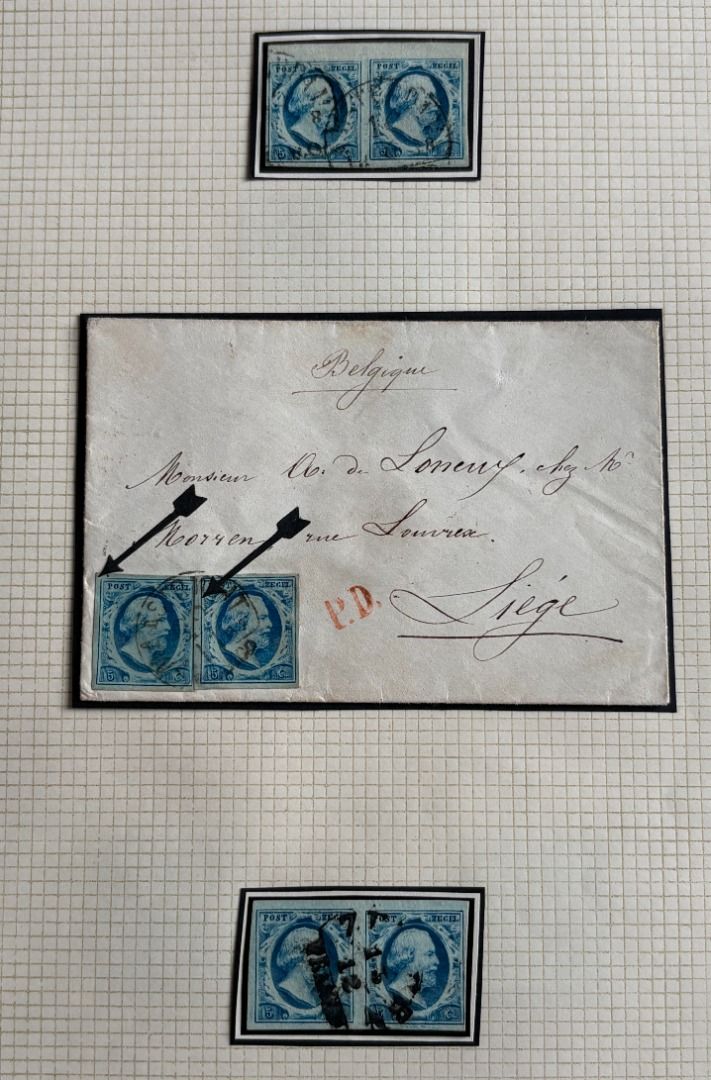 POST ZEGEL POST ZEGEL
5 C. 5 C.
Belgique
Monsieur A. de Loneux, chez Mr
Morren rue Louvrex.
P.D.
Liége
POST ZEGEL POST ZEGEL
5 C. 5 C.
POST ZEGEL POST ZEGEL
7 12
5 C. 5 C.